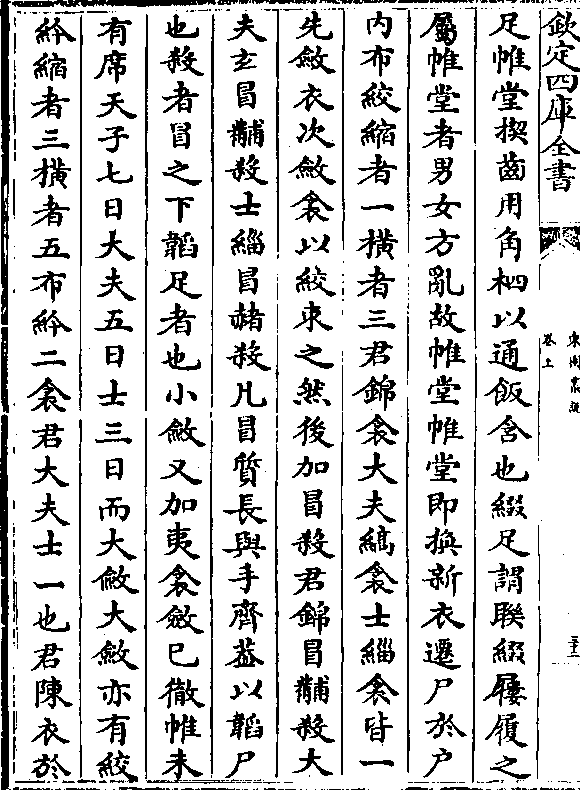 欽定四庫全書
足帷堂揳齒用角柶以通飯含也綴足謂聯綴屨履之
屬帷堂者男女方亂故帷堂帷堂即換新衣遷尸於户
内布絞縮者一横者三君錦衾大夫縞衾士緇衾皆一
先斂衣次斂衾以絞束之然後加冒殺君錦冒黼殺大
夫玄冒黼殺士緇冒赭殺凡冒質長與手齊葢以韜尸
也殺者冒之下韜足者也小斂又加夷衾斂已徹帷未
有席天子七日大夫五日士三日而大斂大斂亦有絞
紟縮者三横者五布紟二衾君大夫士一也君陳衣於
卷上